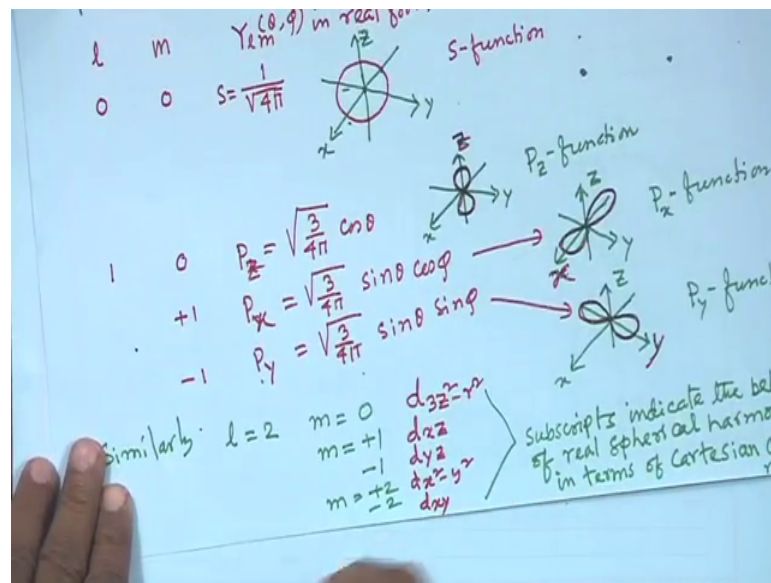 l m Yₗₘ(θ,φ) in real
0 0 S = 1/√4π Z Y x S-function
Z Y x P_z-function
1 0 P_z = √(3/4π) cosθ
+1 P_x = √(3/4π) sinθ cosφ Z Y x P_x-function
-1 P_y = √(3/4π) sinθ sinφ Z y x P_y-
Similarly l=2 m=0 d3z²-r²
m=+1 dxz
-1 dyz
m=+2 dx²-y²
-2 dxy
Subscripts indicate the
of real spherical
in terms of Cartesian